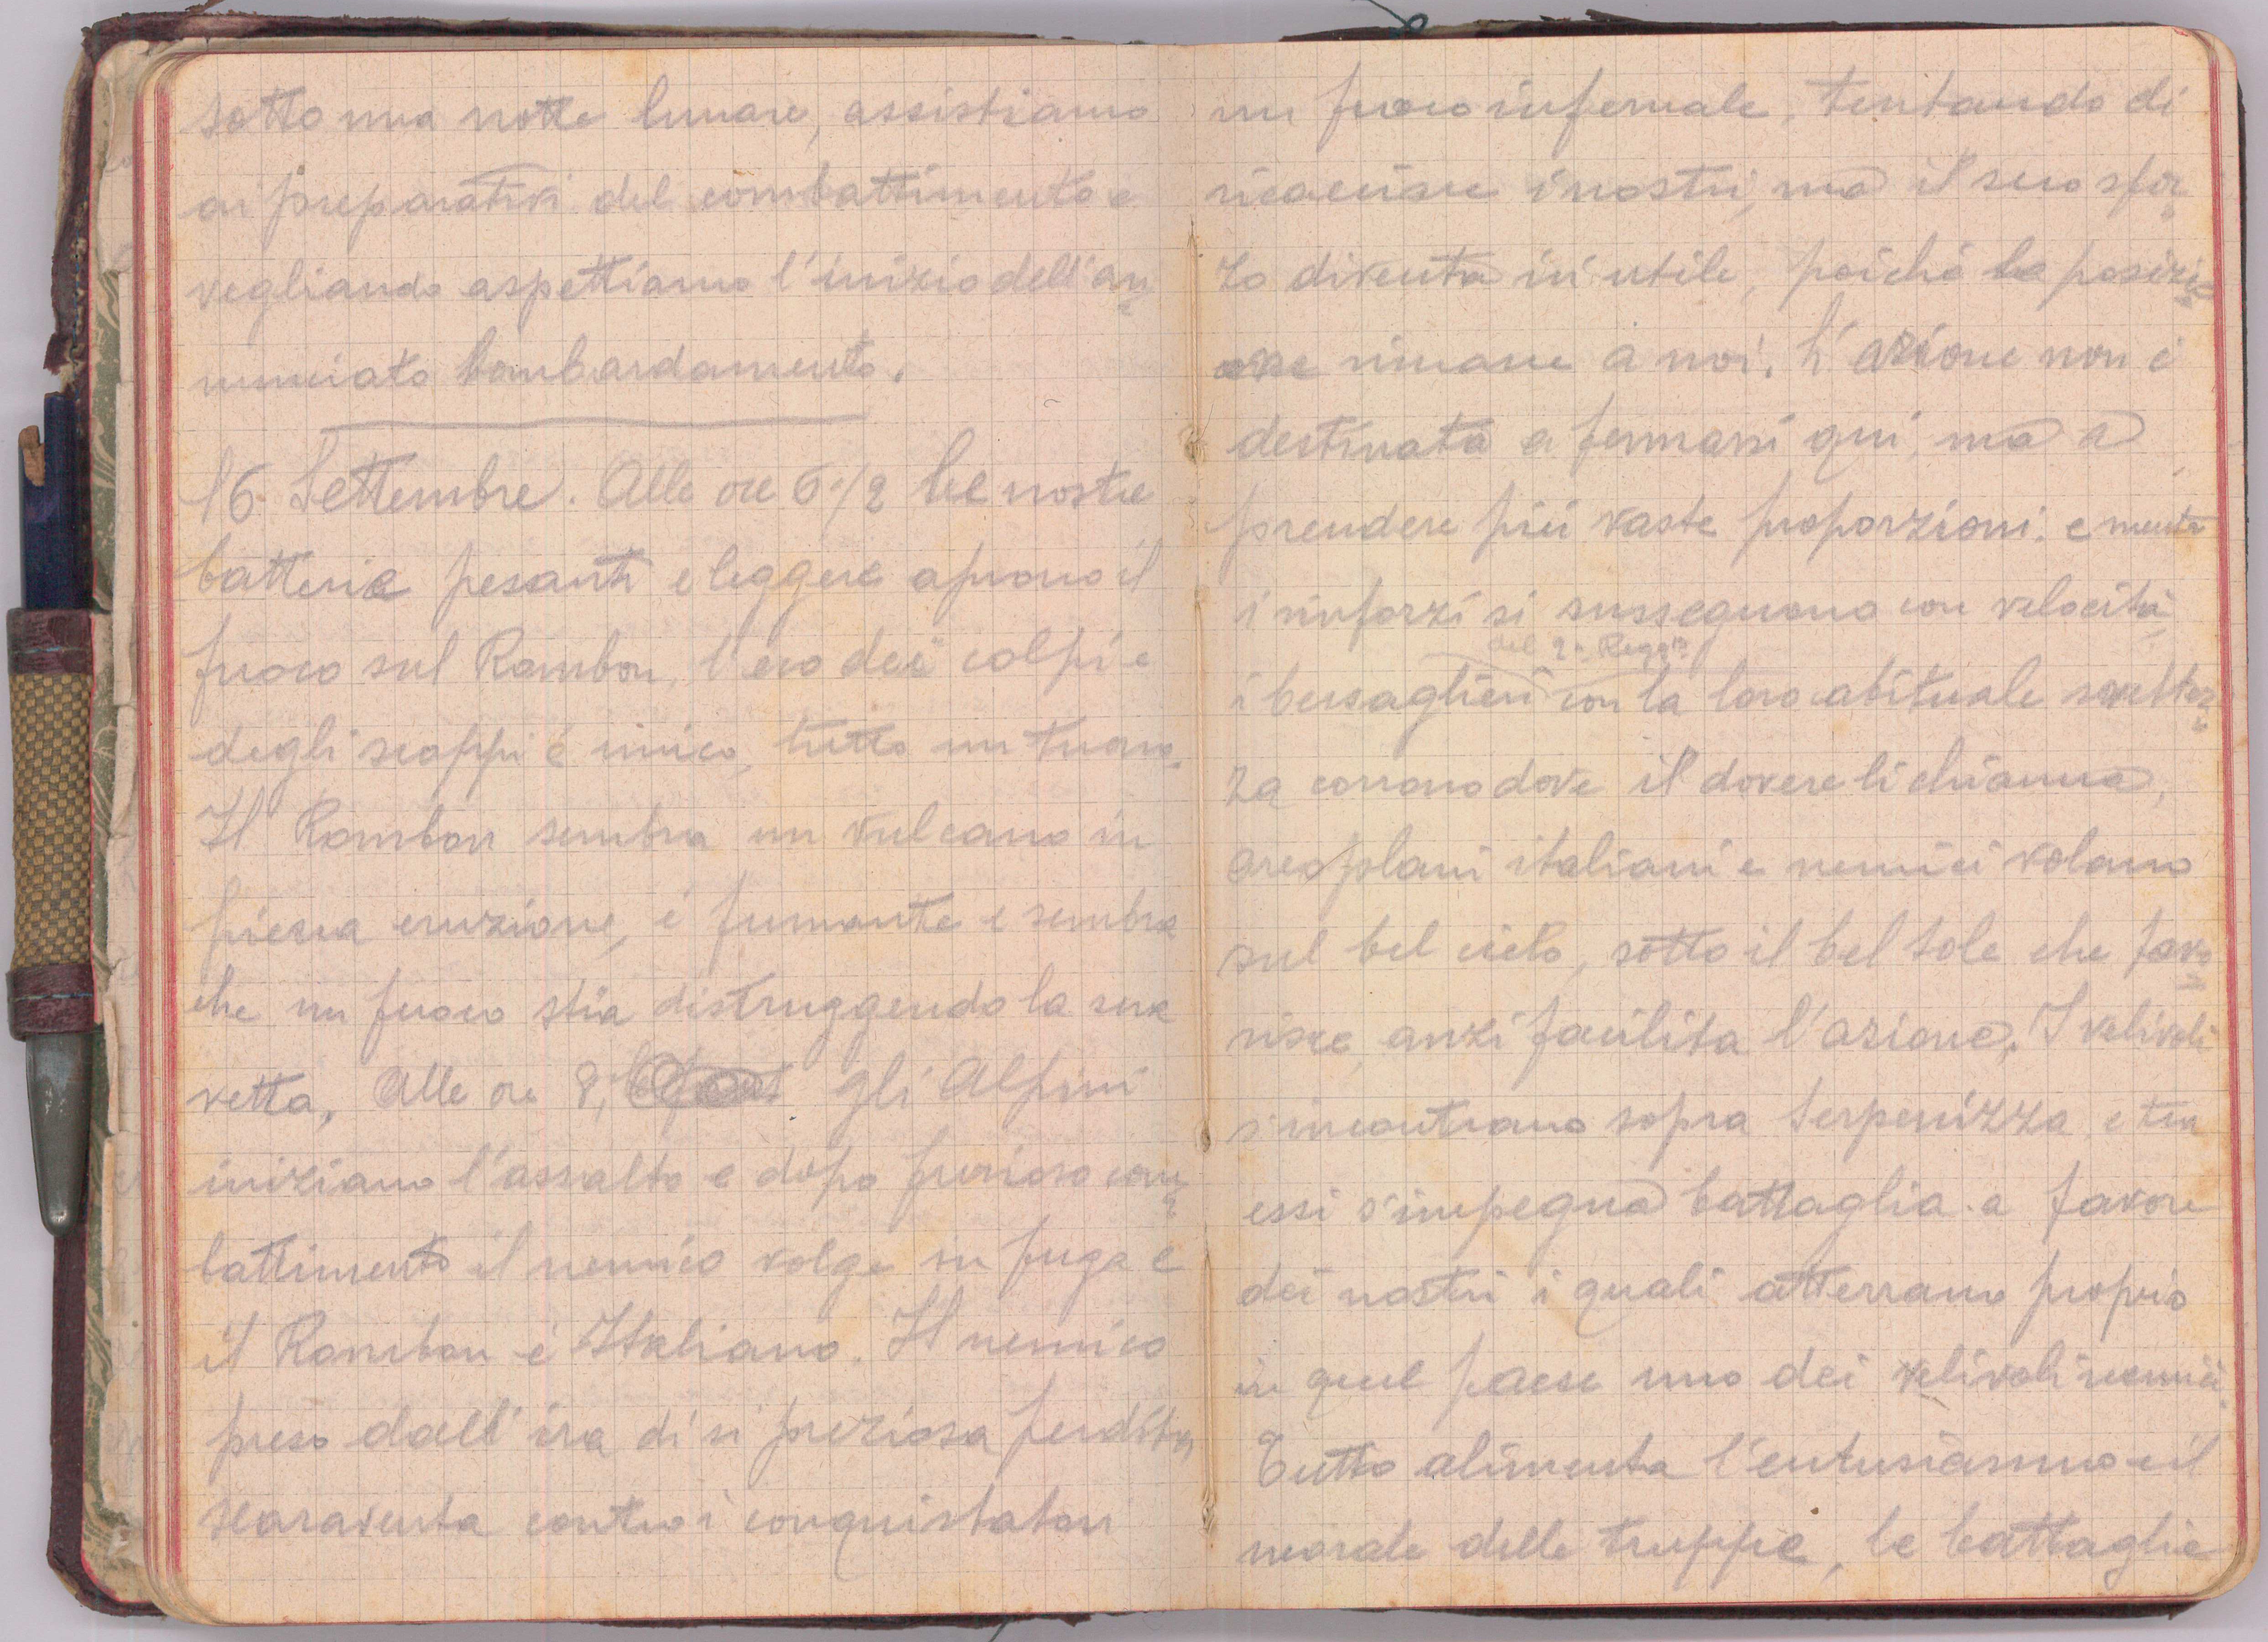 sotto una notte lunare, assistiamo
ai preparativi del combattimento e
vegliando aspettiamo l'inizio dell'an=
nunciato bombardamento.
16 Settembre. Alle ore 6 1/2 le nostre
batterie pesanti e leggere aprono il
fuoco sul Rombon, l'eco dei colpi e
degli scoppi è unico, tutto un tuono.
Il Rombon sembra un vulcano in
piena eruzione, è fumante e sembra
che un fuoco stia distruggendo la sua
vetta, Alle ore 8, gli Alpini
iniziano l'assalto e dopo furioso com=
battimento il nemico volge in fuga e
il Rombon è Italiano. Il nemico
preso dall'ira di sì preziosa perdita,
scaraventa contro i conquistatori
un fuoco infernale, tentando di
ricacciare i nostri, ma il suo sfor=
zo diventa inutile, poichè la posizi=
one rimane a noi. L'azione non è
destinata a fermarsi qui, ma a
prendere più vaste proporzioni. e mentre
i rinforzi si susseguono con velocità,
del 2° Regg°
i bersaglieri con la loro abituale sveltez=
za corrono dove il dovere li chiama,
areoplani italiani e nemici volano
sul bel cielo, sotto il bel sole che favo=
risce, anzi facilita l'azione. I velivoli
s'incontrano sopra Serpenizza, e tra
essi s'impegna battaglia a favore
dei nostri i quali atterrano proprio
in quel paese uno dei velivoli nemici.
Tutto alimenta l'entusiasmo e il
morale delle truppe, le battaglie